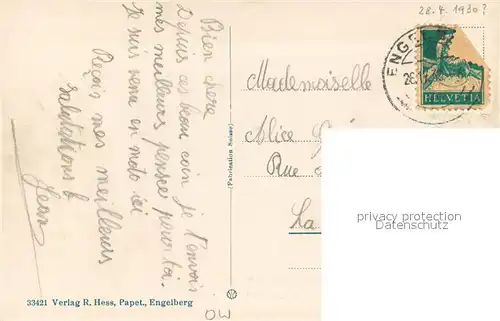 28.4.1930?
Bien chere
Depuis ces beau coin je t'envois
mes meilleurs pensée pour toi.
Je suis venu en moto ici
Reçois mes meilleurs
salutations
Jean
ENGE
HELVETIA
Mademoiselle
Alice
Rue
La
(Fabrication Suisse)
privacy protection
Datenschutz
33421 Verlag R. Hess, Papet., Engelberg
OW